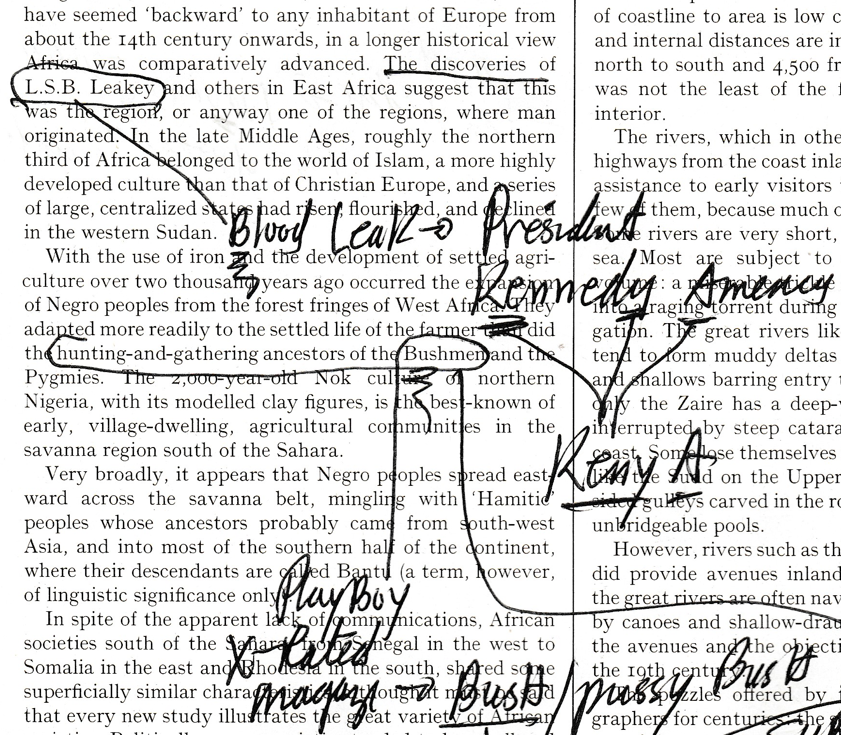 have seemed ‘backward’ to any inhabitant of Europe from
about the 14th century onwards, in a longer historical view
Africa was comparatively advanced. The discoveries of
L.S.B. Leakey and others in East Africa suggest that this
was the region, or anyway one of the regions, where man
originated. In the late Middle Ages, roughly the northern
third of Africa belonged to the world of Islam, a more highly
developed culture than that of Christian Europe, and a series
of large, centralized states had risen, flourished, and declined
in the western Sudan.
With the use of iron and the development of settled agri-
culture over two thousand years ago occurred the expansion
of Negro peoples from the forest fringes of West Africa. They
adapted more readily to the settled life of the farmer than did
the hunting-and-gathering ancestors of the Bushmen and the
Pygmies. The 2,000-year-old Nok culture of northern
Nigeria, with its modelled clay figures, is the best-known of
early, village-dwelling, agricultural communities in the
savanna region south of the Sahara.
Very broadly, it appears that Negro peoples spread east-
ward across the savanna belt, mingling with ‘Hamitic’
peoples whose ancestors probably came from south-west
Asia, and into most of the southern half of the continent,
where their descendants are called Bantu (a term, however,
of linguistic significance only
In spite of the apparent lack of communications, African
societies south of the Sahara from Senegal in the west to
Somalia in the east and Rhodesia in the south, shared some
superficially similar characteristics, though it must be said
that every new study illustrates the great variety of African
of coastline to area is low
and internal distances are
north to south and 4,500
was not the least of the
interior.
The rivers, which in
highways from the coast
assistance to early visitors
few of them, because much
rivers are very short,
sea. Most are subject to
volume: a miserable trickle
into a raging torrent during
gation. The great rivers
tend to form muddy deltas
and shallows barring entry
only the Zaire has a
interrupted by steep
coast. Some lose themselves
like the Sudd on the Upper
sided gulleys carved in the
unbridgeable pools.
However, rivers such as
did provide avenues inland
the great rivers are often
by canoes and
the avenues and the
the 19th century
puzzles offered by
graphers for centuries: the
Blood Leak → President
Kennedy America
Keny A
PlayBoy
X-Rated
→ BusH / pussy BusH